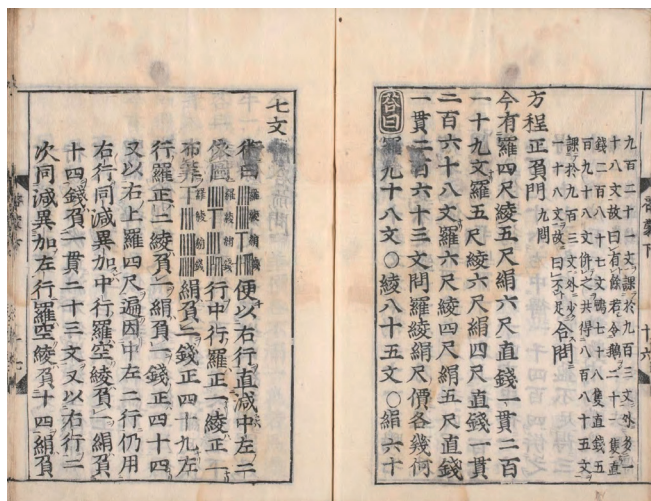 九百二十一文課於九百三文外多一
十八文故曰有餘若令鵝二十二隻直
錢二百八十七文鴨七十八隻直錢五
百九十八文併之共得八百八十五文
課於九百三文外少
一十八文故曰不足合問
方程正負門九問
今有羅四尺綾五尺絹六尺直錢一貫二百
一十九文羅五尺綾六尺絹四尺直錢一貫
二百六十八文羅六尺綾四尺絹五尺直錢
一貫二百六十三文問羅綾絹尺價各幾何
答曰羅九十八文〇綾八十五文〇絹六十
七文
術曰羅綾絹錢便以右行直減中左二
依圖羅綾絹錢行中行羅正一綾正一
布筭羅綾絹錢絹負二錢正四十九左
行羅正二綾負一絹負一錢正四十四
又以右上羅四尺遍因中左二行仍用
右行同減異加中行羅空綾負一絹負
十四錢負一貫二十三文又以右行二
次同減異加左行羅空綾負十四絹負